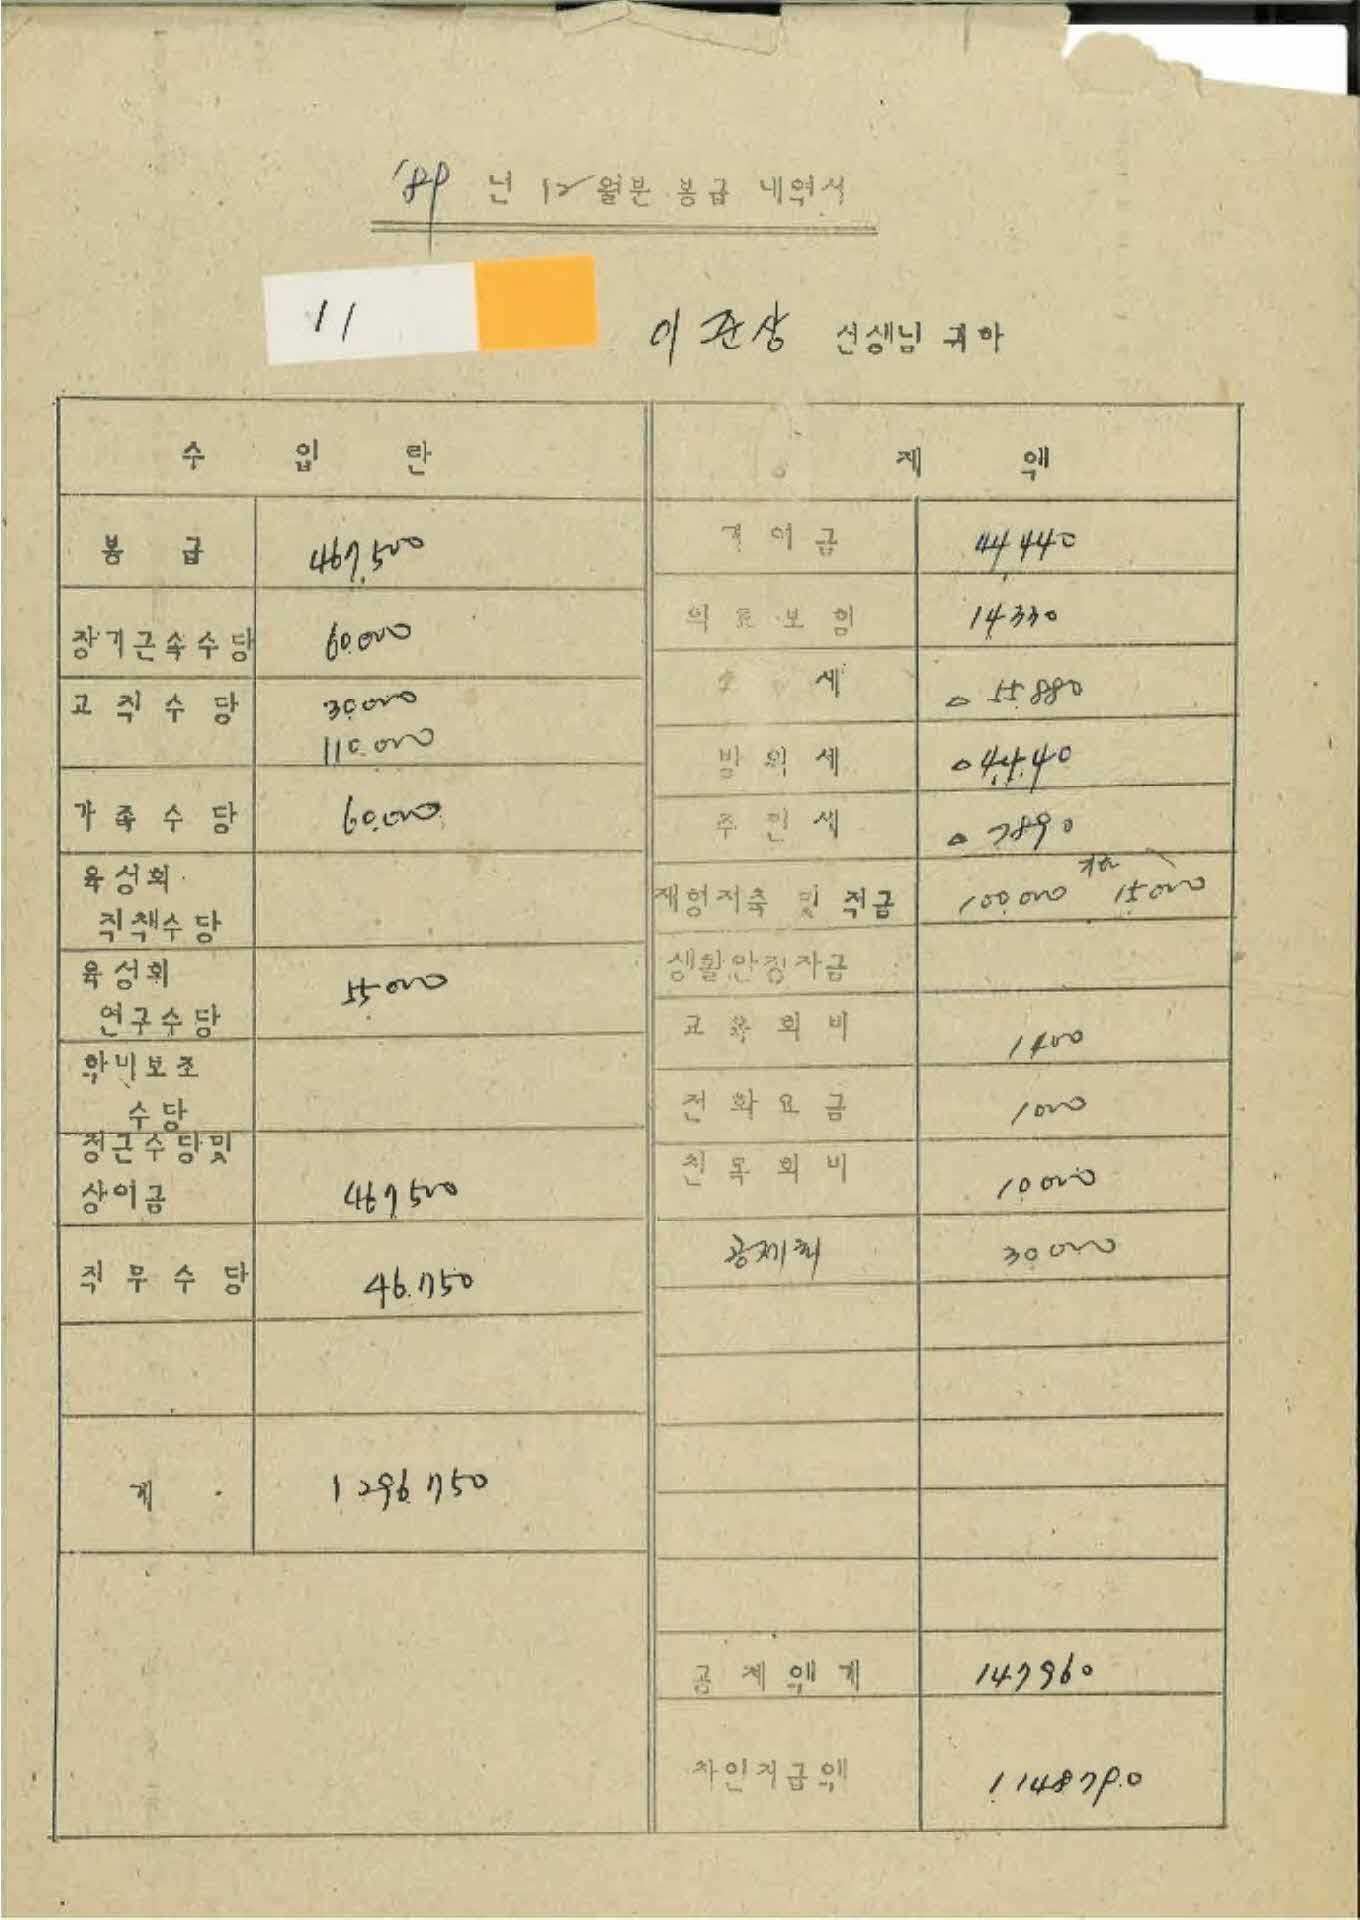 '89 년 12 월분 봉급 내역서
11
이관상 선생님 귀하
수 입 란
봉 급 467,500
장기근속수당 60.000
교직수당 30.000
110.000
가족수당 60.000
육성회
직책수당
육성회
연구수당 55.000
학비보조
수당
정근수당및
상여금 467,500
직무수당 46.750
계 1296.750
제 액
기여금 44,440
의료보험 14330
세 55.880
방위세 4440
주민세 7890
재형저축 및 적금 100.000 15.000
생활안정자금
교육회비 1400
전화요금 1000
친목회비 10.000
공제회 30000
공제액계 147960
차인지급액 1.148790